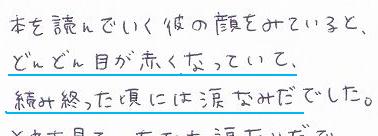 本を読んでいく彼の顔をみていると、
どんどん目が赤くなっていて、
績み終った頃には涙なみだでした。